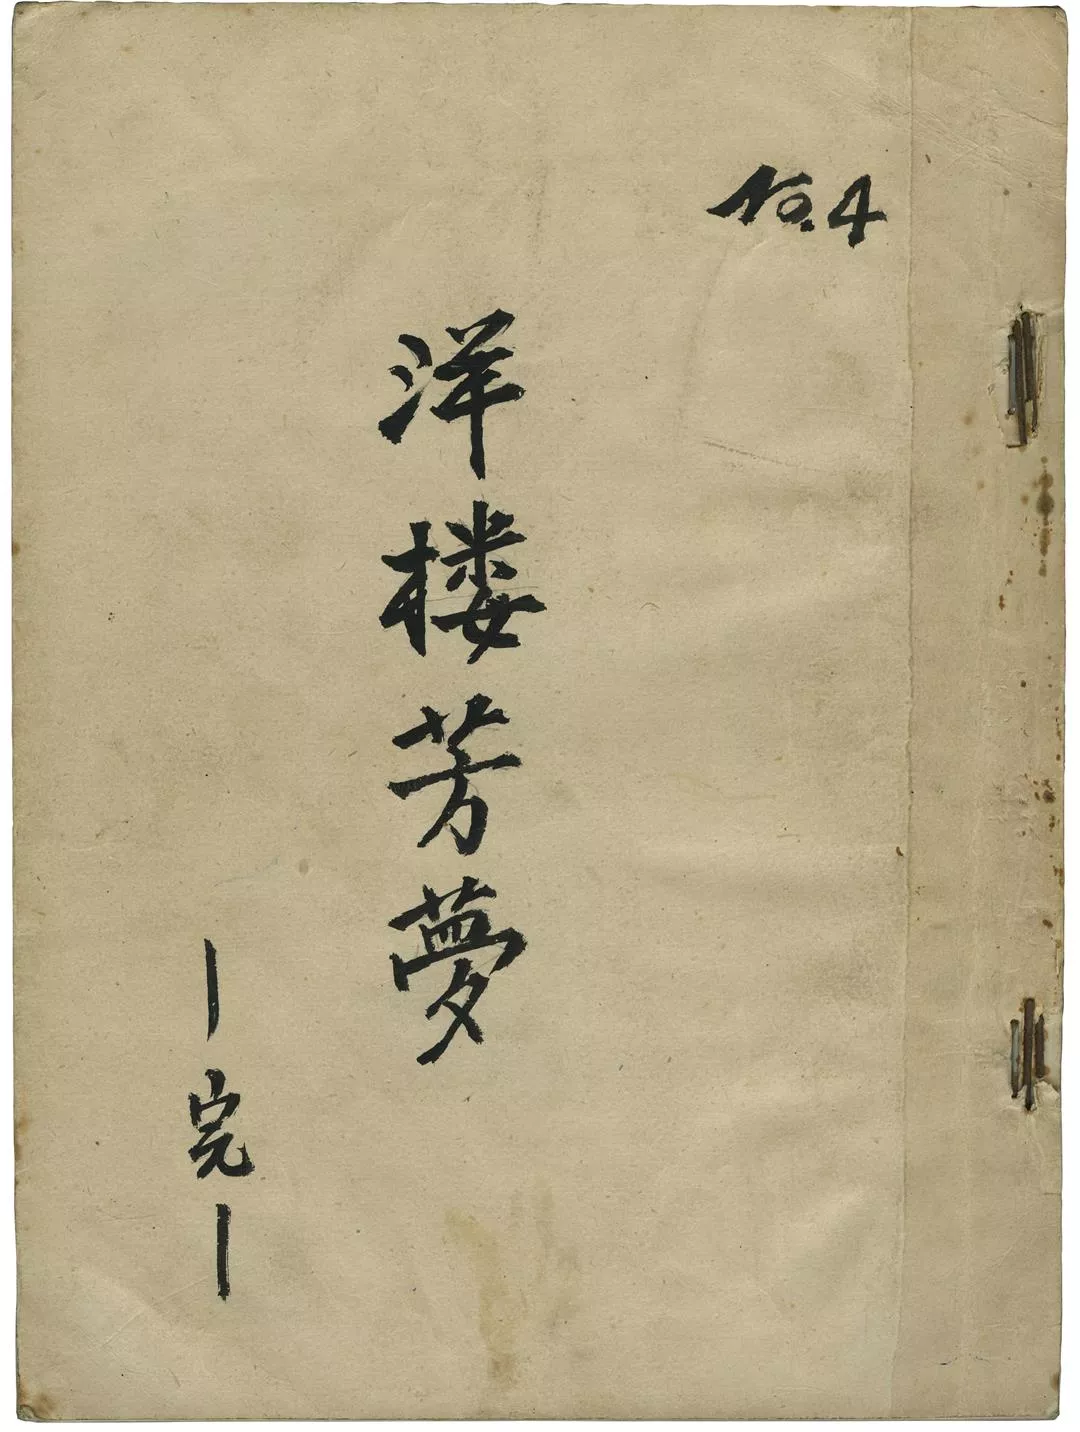 No.4
洋楼芳夢
—完—